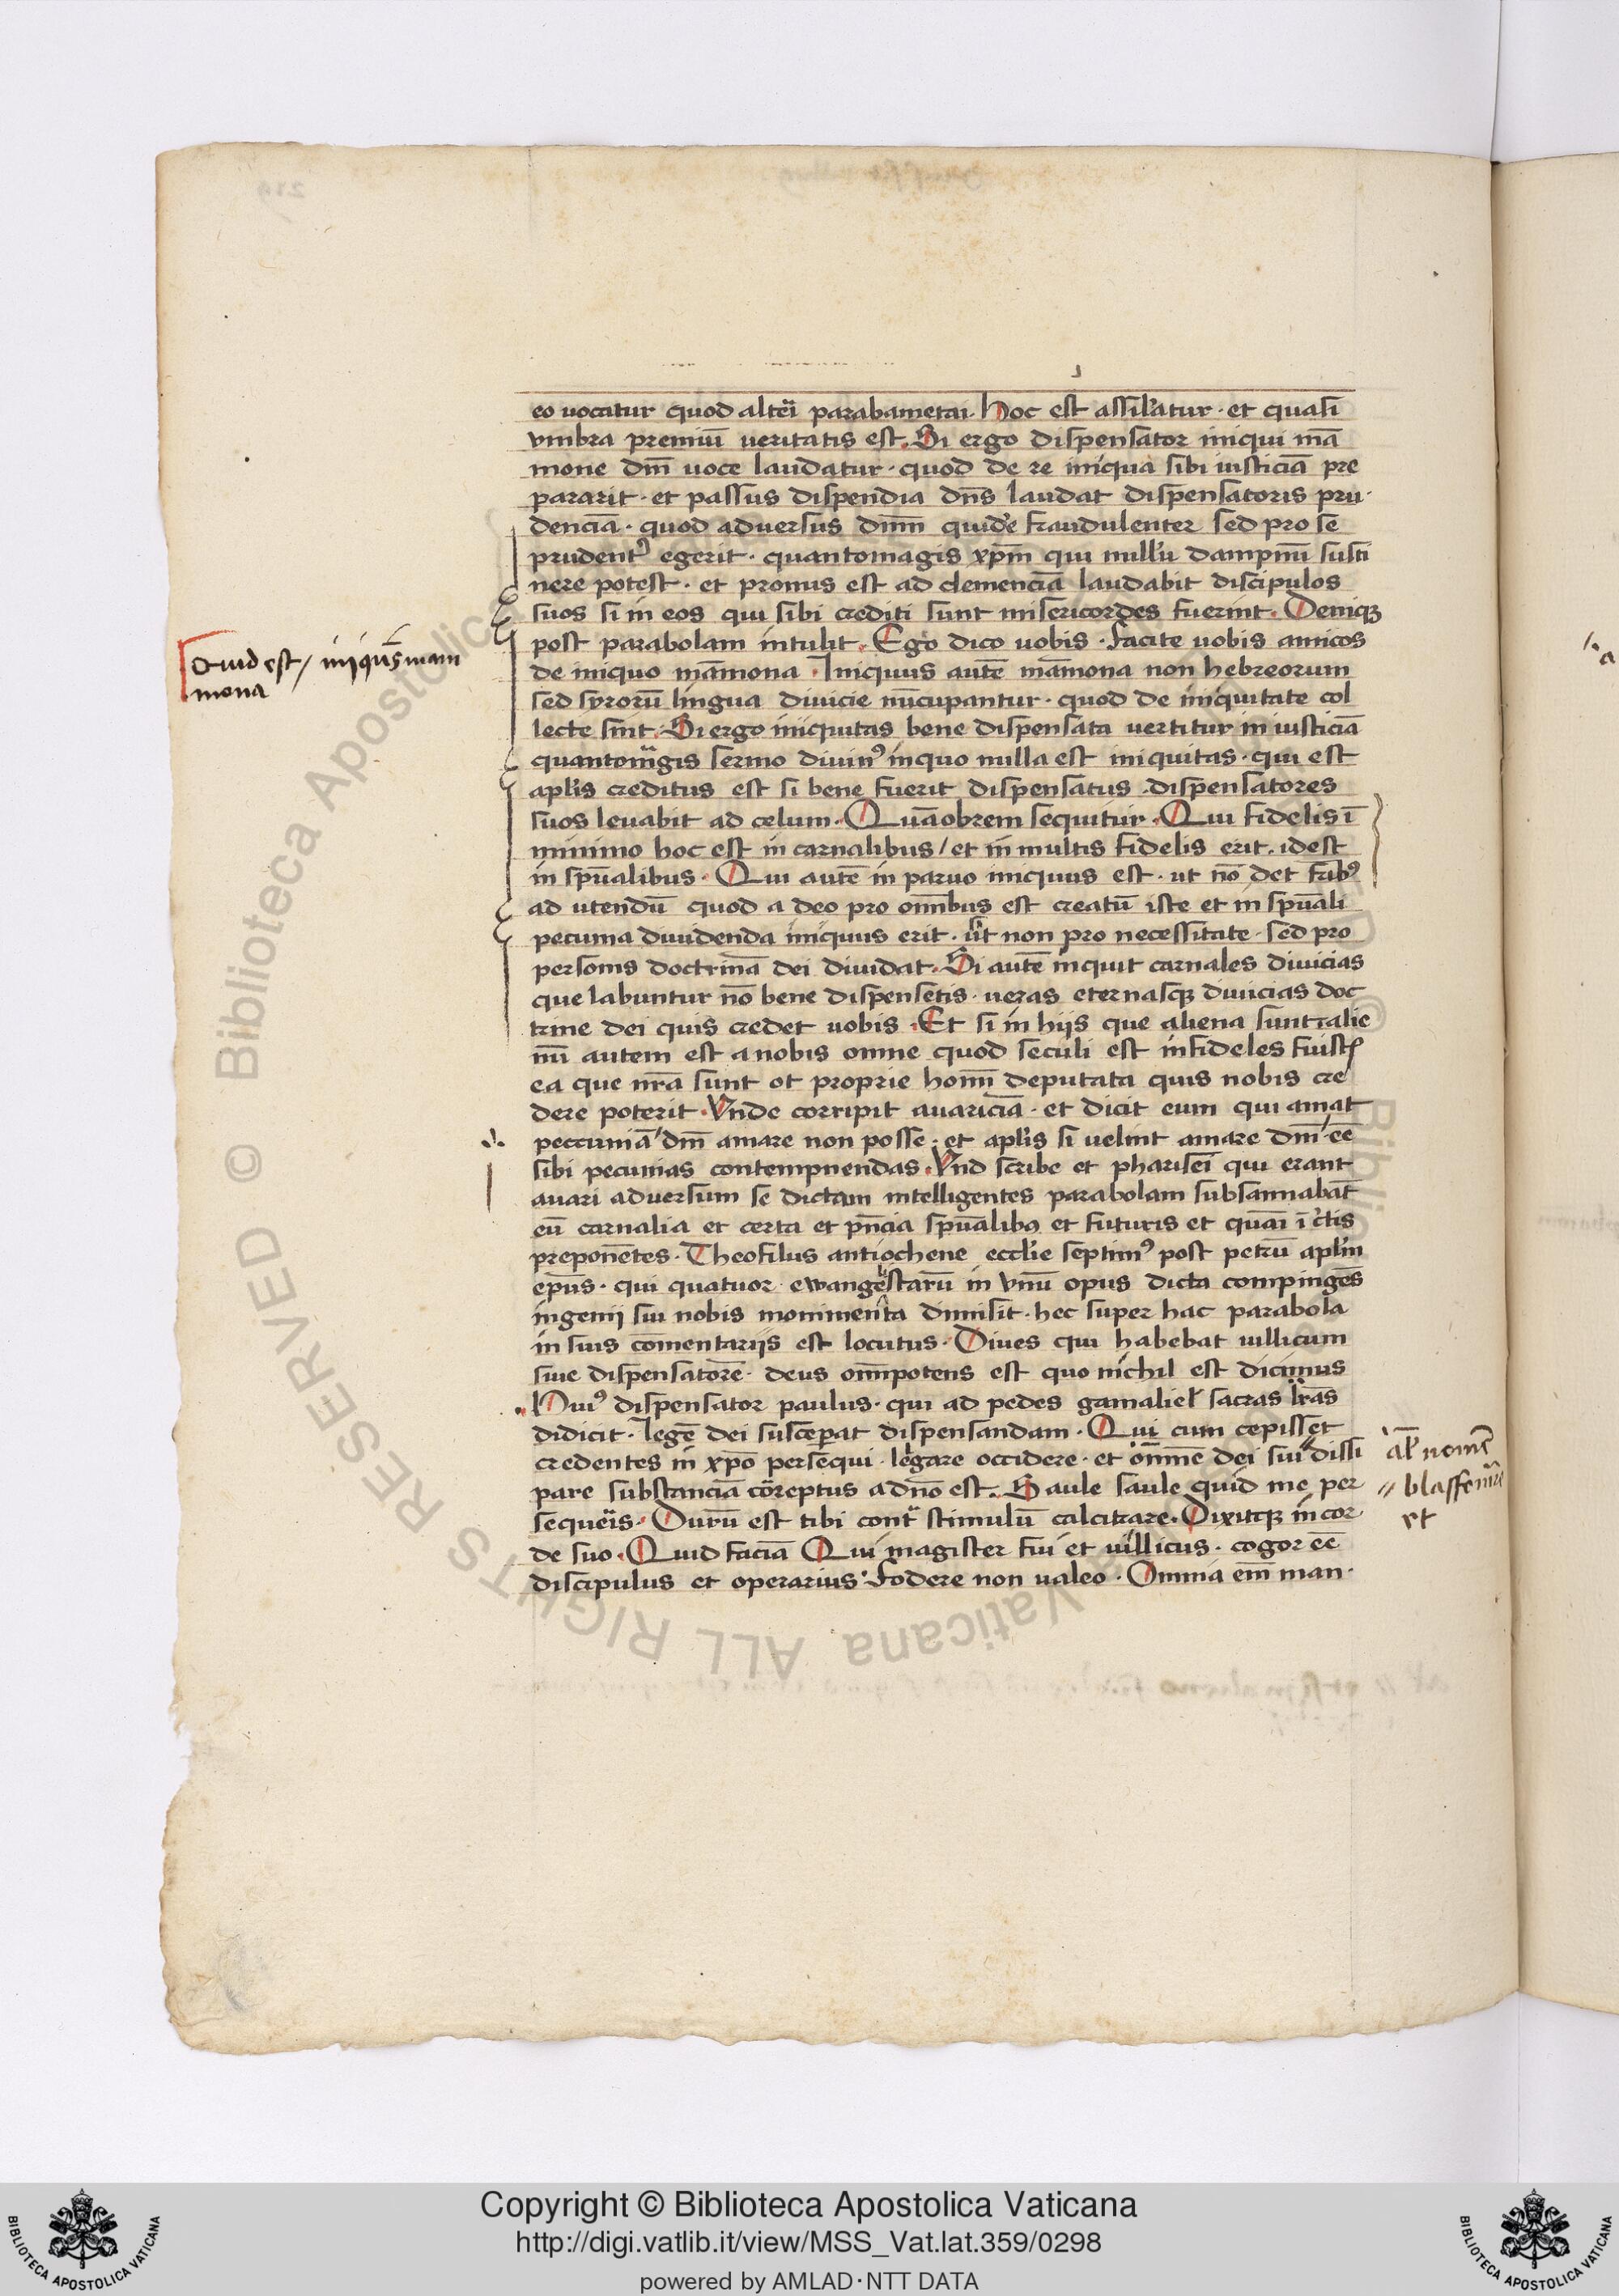 eo uocatur quod altẽi parabametai. Hoc est assilatur · et quasi
vmbra premiũ ueritatis est. Si ergo dispensator iniqui mã
mone dñi uoce laudatur · quod de re iniqua sibi iusticiã pre
pararit · et passus dispendia dñs laudat dispensatoris pru·
denciã · quod aduersus dñm quidẽ fraudulenter sed pro se
prudentꝰ egerit · quantomagis xpm̃ qui nullũ dampnũ susti
nere potest · et pronus est ad clemenciã laudabit discipulos
suos si in eos qui sibi crediti sunt misericordes fuerint. Deniqꝫ
post parabolam intulit. Ego dico uobis · facite uobis amicos
Quid est / iniqus̃ mam
mona
de iniquo mãmona · Iniquus autẽ mãmona non hebreorum
sed syrorũ lingua diuicie nũcupantur · quod de iniquitate col
lecte sint. Si ergo iniquitas bene dispensata uertitur in iusticiã
quantomagis sermo diuinꝰ inquo nulla est iniquitas · qui est
aplis creditus est si bene fuerit dispensatus · dispensatores
suos leuabit ad celum. Quãobrem sequitur. Qui fidelis ĩ
minimo hoc est in carnalibus / et in multis fidelis erit · idest
in spũalibus. Qui autẽ in paruo iniquus est · ut nõ det frĩbꝰ
ad utendũ quod a deo pro omnibus est creatũ iste et in spũali
pecunia diuidenda iniquus erit · ut non pro necessitate · sed pro
personis doctrinã dei diuidat. Si autẽ inquit carnales diuicias
que labuntur nõ bene dispensetis · ueras eternasqꝫ diuicias doc
trine dei quis credet uobis. Et si in hijs que aliena sunt alie
nũ autem est a nobis omne quod seculi est infideles fuistꝭ
ea que nrã sunt et proprie homĩ deputata quis nobis cre
dere poterit. Vnde corripit auariciã · et dicit eum qui amat
peccuniã dm̃ amare non posse · et aplis si uelint amare dm̃ eẽ
sibi pecunias contempnendas. Vnd scribe et pharisei qui erant
auari aduersum se dictam intelligentes parabolam subsannabãt
eũ carnalia et certa et pñcia spũalibꝫ et futuris et quãi ĩ ctis
preponẽtes. Theofilus antiochene ecclie septimꝰ post petrũ aplm
epũs · qui quatuor ewangelistarũ in vnũ opus dicta compingẽs
ingenij sui nobis monimenta dimisit · hec super hac parabola
in suis comẽntarijs est locutus. Diues qui habebat uillicum
siue dispensatorẽ · deus omĩpotens est quo nichil est dicimus
Huiꝰ dispensator paulus · qui ad pedes gamaliel sacras lrãs
didicit. legẽ dei susceperat dispensandam. Qui cum cepisset
credentes in xpõ persequi · legare occidere · et omnẽ dei sui // dissi
al̃ nomẽ
// blasfemĩe
et
pare substanciã coreptus a dño est. Saule saule quid me per
sequeris. Durũ est tibi contra stimulũ calcitrare. Dixitqꝫ in cor
de suo. Quid faciã Qui magister fui et uillicus · cogor eẽ
discipulus et operarius · fodere non ualeo. Omnia em̃ man·
Copyright © Biblioteca Apostolica Vaticana
http://digi.vatlib.it/view/MSS_Vat.lat.359/0298
powered by AMLAD·NTT DATA
BIBLIOTECA APOSTOLICA VATICANA
BIBLIOTECA APOSTOLICA VATICANA
© Biblioteca Apostolica Vaticana ALL RIGHTS RESERVED